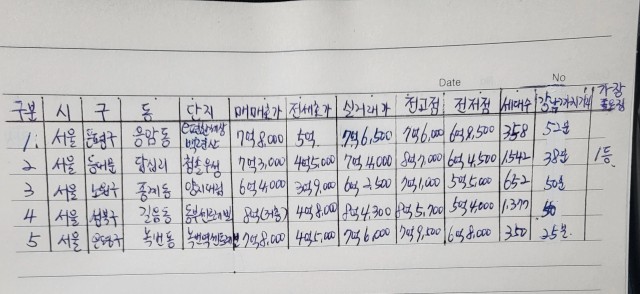 Date No
구분 시 구 동 단지 매매호가 전세호가 실거래가 전고점 전저점 세대수 강남까지거리 가장
1. 서울 은평구 응암동 백련산 7억8,000 5억 7억6,500 7억6,000 6억8,500 358 52분
2 서울 동대문 답십리 청솔우성 7억3,000 4억5,000 7억4,000 8억7,000 4,500 1542 38분 1등
3 서울 노원구 중계동 6억4,000 3억9,000 6억2,500 7억1,000 5억5,000 652 50분
4 서울 성북구 길음동 8억 4억8,000 8억4,300 8억5,700 5억4,000 1.377
5 서울 은평구 녹번동 7억8,000 4억5,000 7억6,000 7억9,500 6억8,000 350 25분